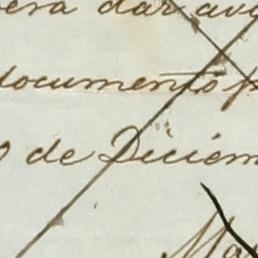 era dar av
documento p
o de Diciem
Ma